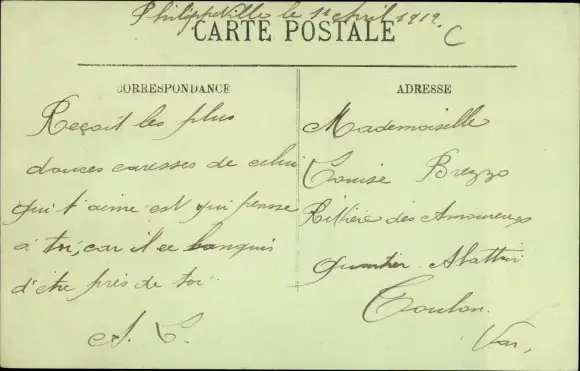 Philippeville le 1r Avril 1912.
CARTE POSTALE
C
CORRESPONDANCE
Reçoit les plus
douces caresses de celui
qui t'aime est qui pensse
à toi, car il ce languis
d'être près de toi
A. C.
ADRESSE
Mademoiselle
Louise Brezzo
Rivière des Amoureux
quartier
Toulon.
Var,